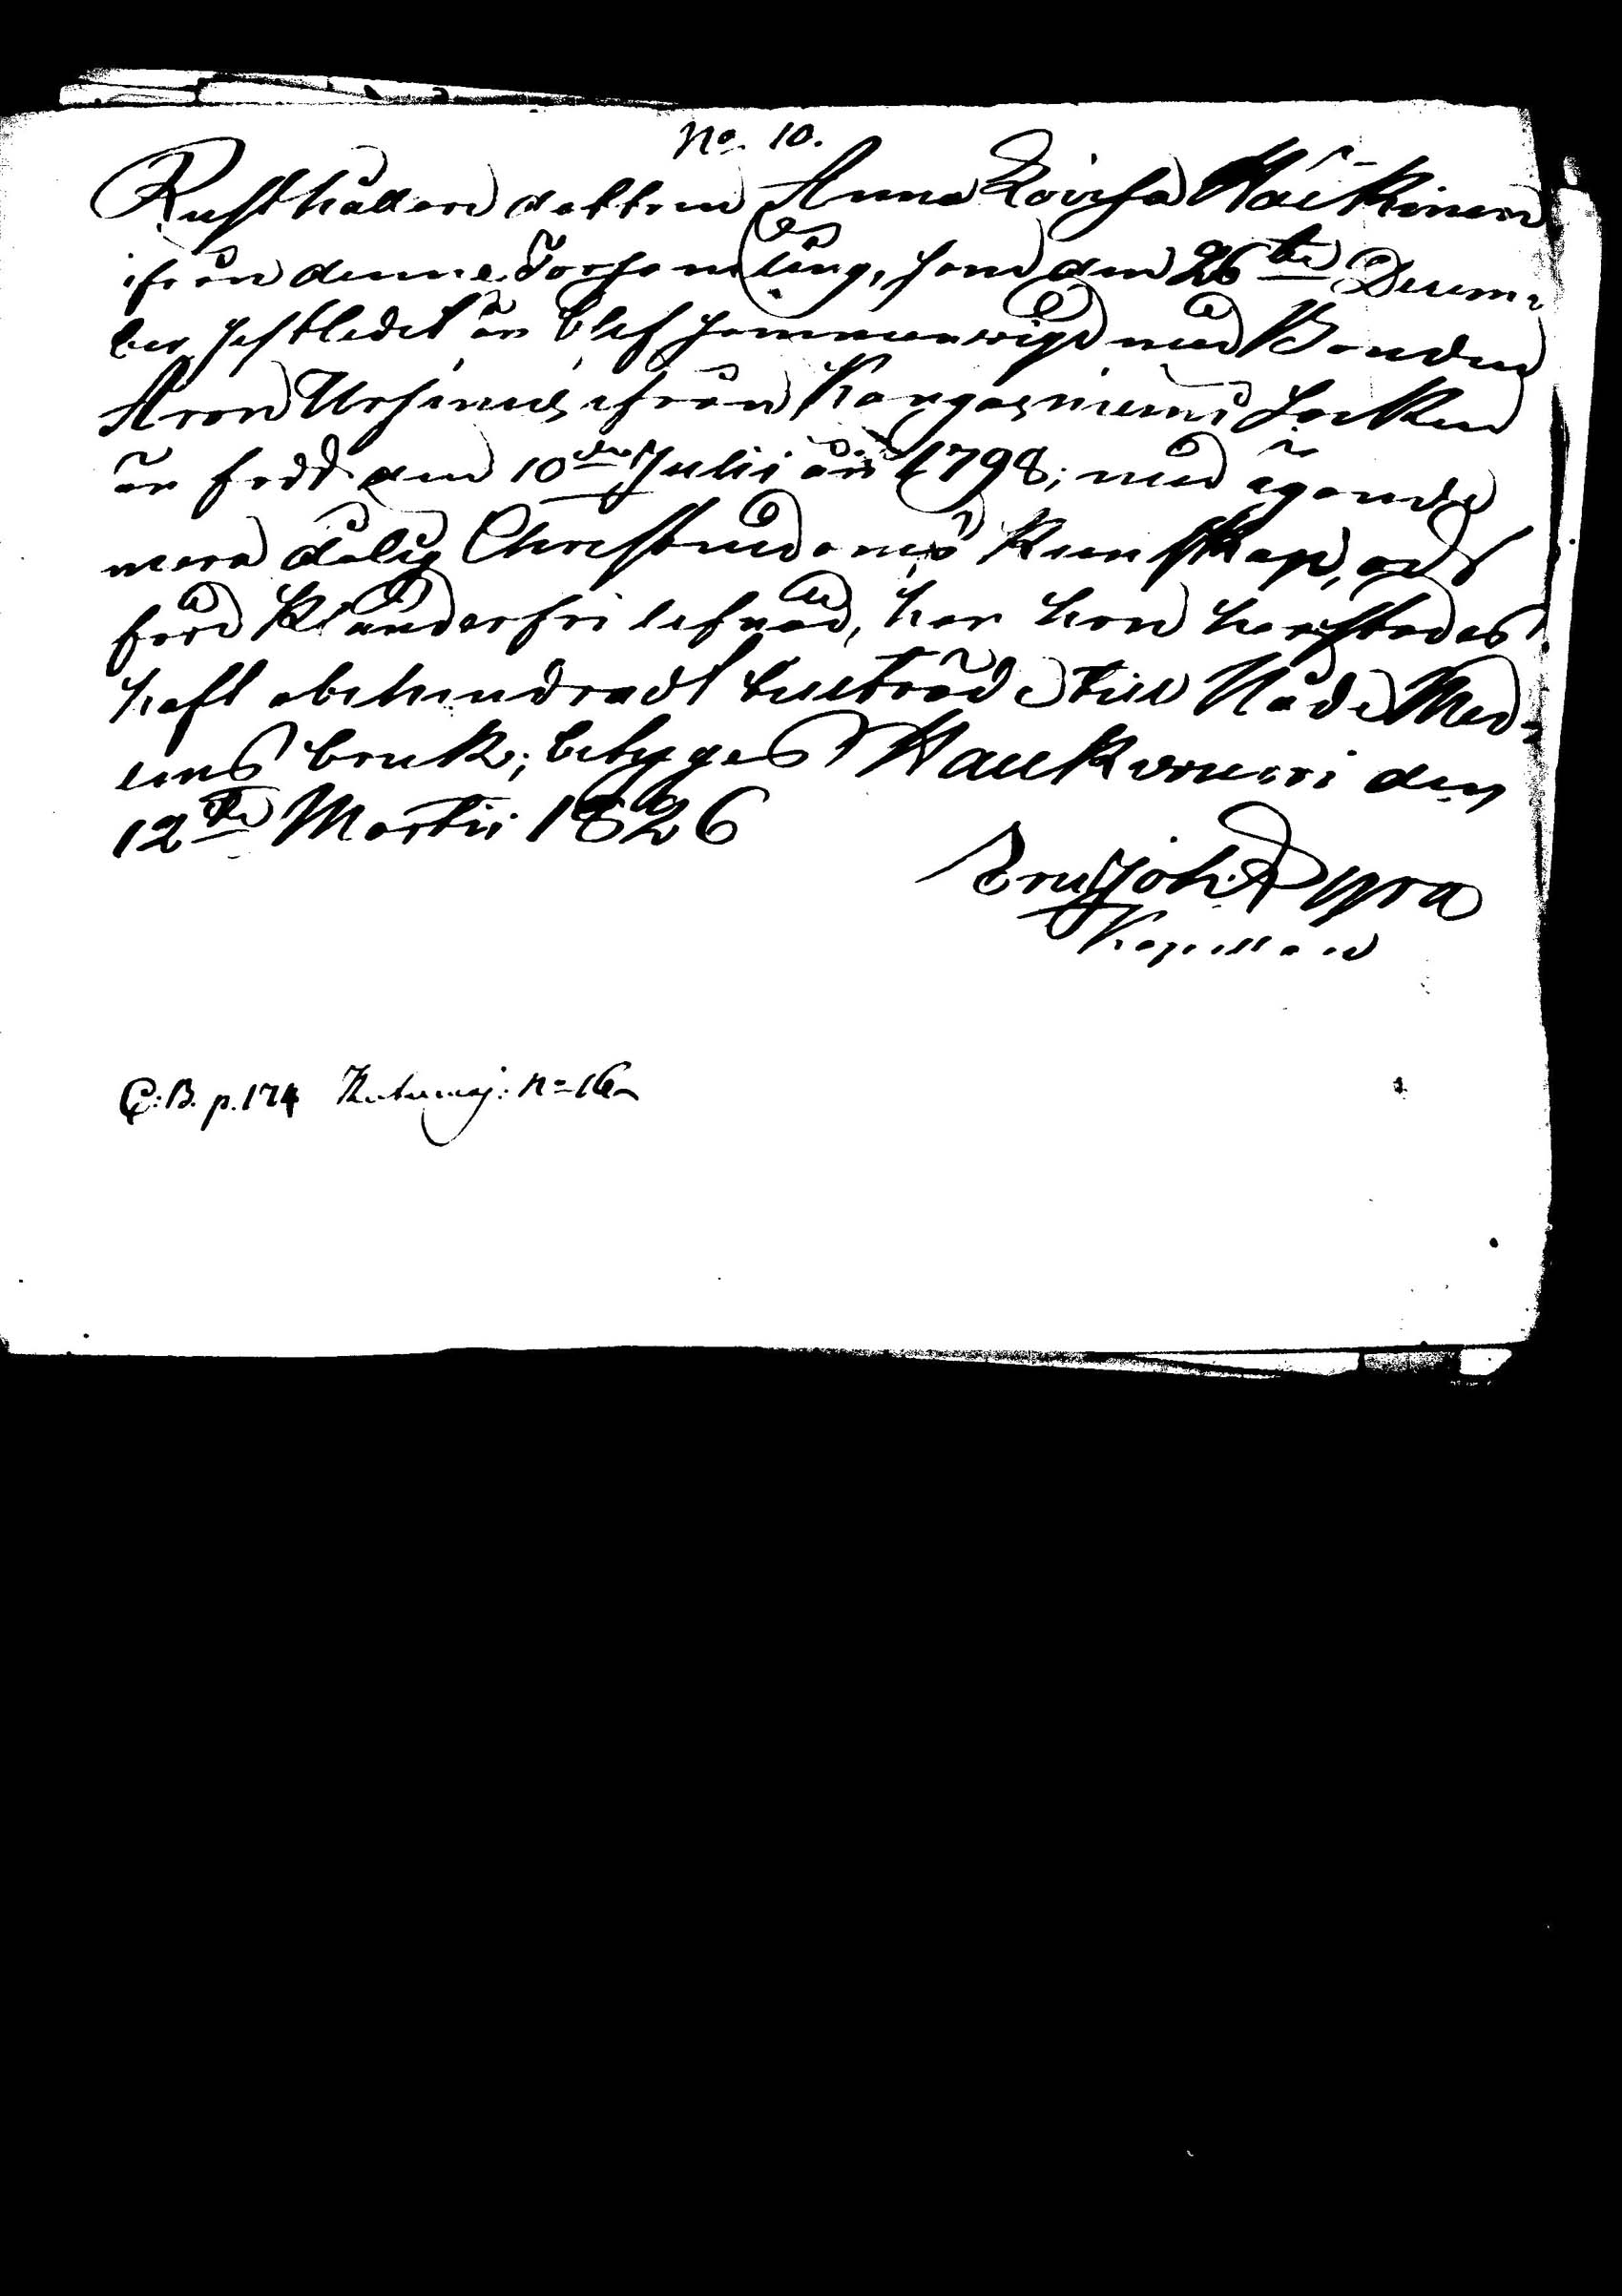 No. 10.
Rusthållare dottren Anna Lovisa Häckinen
ifrån denne Församling, som den 26te Decem-
ber sistledit år blef sammanvigd med Bonden
Aron Ursinus ifrån Kangasniemi Socken
är född den 10de Julii år 1798; med ägande
mera dålig Christendoms Kunskap, och
förd Klanderfri lefnad, har hon härstädes
haft obehindradt tillträde till Nåde Med-
lens bruk; betygas Haukivuori den
12te Martii 1826
Joh.
Kapellan
C:B. p.174 n=16